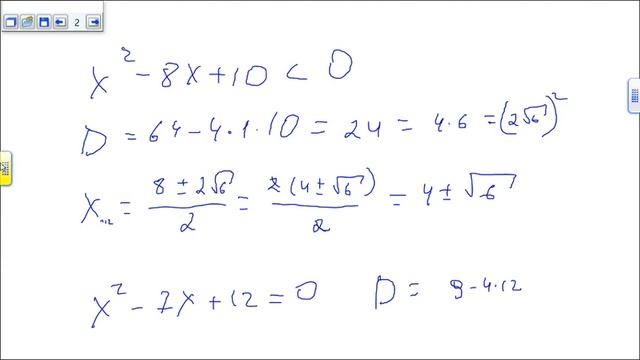 2
x² - 8x + 10 < 0
D = 64 - 4·1·10 = 24 = 4·6 = (2√6)²
x₁,₂ = (8 ± 2√6)/2 = 2(4 ± √6)/2 = 4 ± √6
x² - 7x + 12 = 0 D = 9 - 4·12